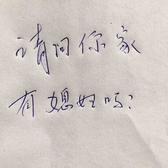 请问你家
有媳妇吗?